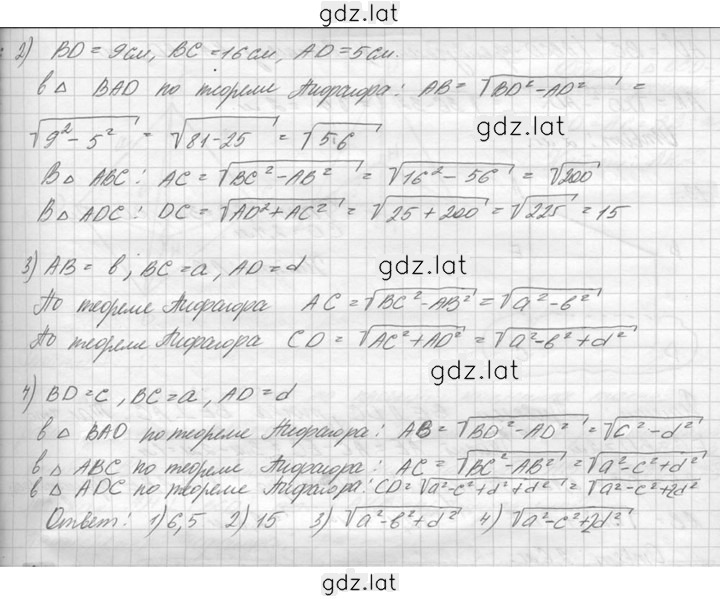 gdz.lat
2) BD = 9см, BC = 16см, AD = 5см.
в △ BAD по теореме Пифагора: AB = √(BD² − AD²) =
√(9² − 5²) = √(81 − 25) = √56
gdz.lat
В △ ABC: AC = √(BC² − AB²) = √(16² − 56) = √200
В △ ADC: DC = √(AD² + AC²) = √(25 + 200) = √225 = 15
3) AB = в; BC = a, AD = d
gdz.lat
По теореме Пифагора AC = √(BC² − AB²) = √(a² − в²)
По теореме Пифагора CD = √(AC² + AD²) = √(a² − в² + d²)
gdz.lat
4) BD = c, BC = a, AD = d
в △ BAD по теореме Пифагора: AB = √(BD² − AD²) = √(c² − d²)
в △ ABC по теореме Пифагора: AC = √(BC² − AB²) = √(a² − c² + d²)
в △ ADC по теореме Пифагора: CD = √(a² − c² + d² + d²) = √(a² − c² + 2d²)
Ответ: 1) 6,5 2) 15 3) √(a² − в² + d²) 4) √(a² − c² + 2d²).
gdz.lat